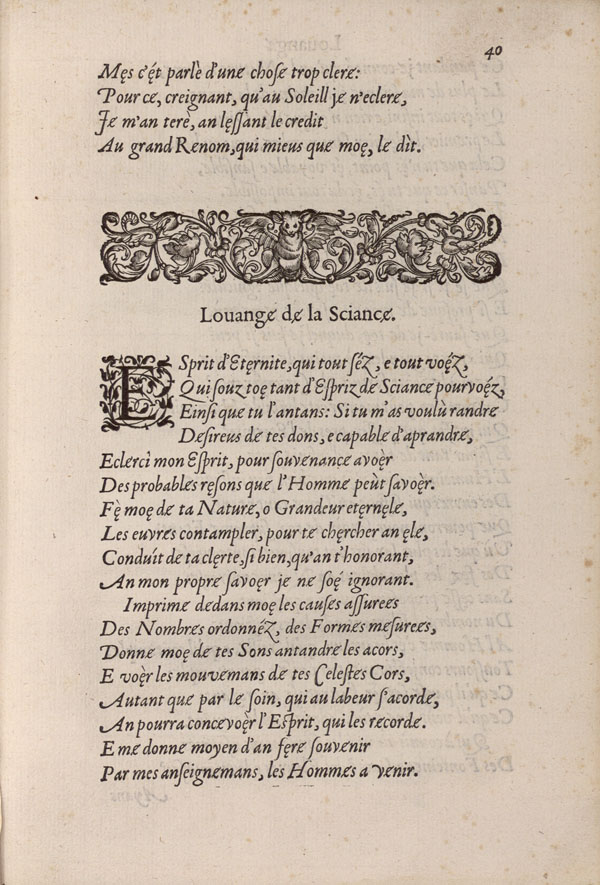 40
Męs c'ét parlè d'une chose trop clere:
Pour ce, creignant, qu'au Soleill je n'eclere,
Je m'an terè, an lęssant le credit
Au grand Renom, qui mieus que moę, le dìt.
Louange de la Sciance.
ESprit d'Eternite, qui tout séz, e tout voéz,
Qui souz toę tant d'Espriz de Sciance pourvoéz,
Einsi que tu l'antans: Si tu m'as voulù randre
Desireus de tes dons, e capable d'aprandre,
Eclerci mon Esprit, pour souvenance avoęr
Des probables ręsons que l'Homme peùt savoęr.
Fę moę de ta Nature, o Grandeur eternęle,
Les euvres contampler, pour te chęrcher an ęle,
Conduit de ta clerte, si bien, qu'an t'honorant,
An mon propre savoęr je ne soę ignorant.
Imprime dedans moę les causes assurees
Des Nombres ordonnéz, des Formes mesurees,
Donne moę de tes Sons antandre les acors,
E voęr les mouvemans de tes Celestes Cors,
Autant que par le soin, qui au labeur s'acorde,
An pourra concevoęr l'Esprit, qui les recorde.
E me donne moyen d'an fęre souvenir
Par mes anseignemans, les Hommes a venir.